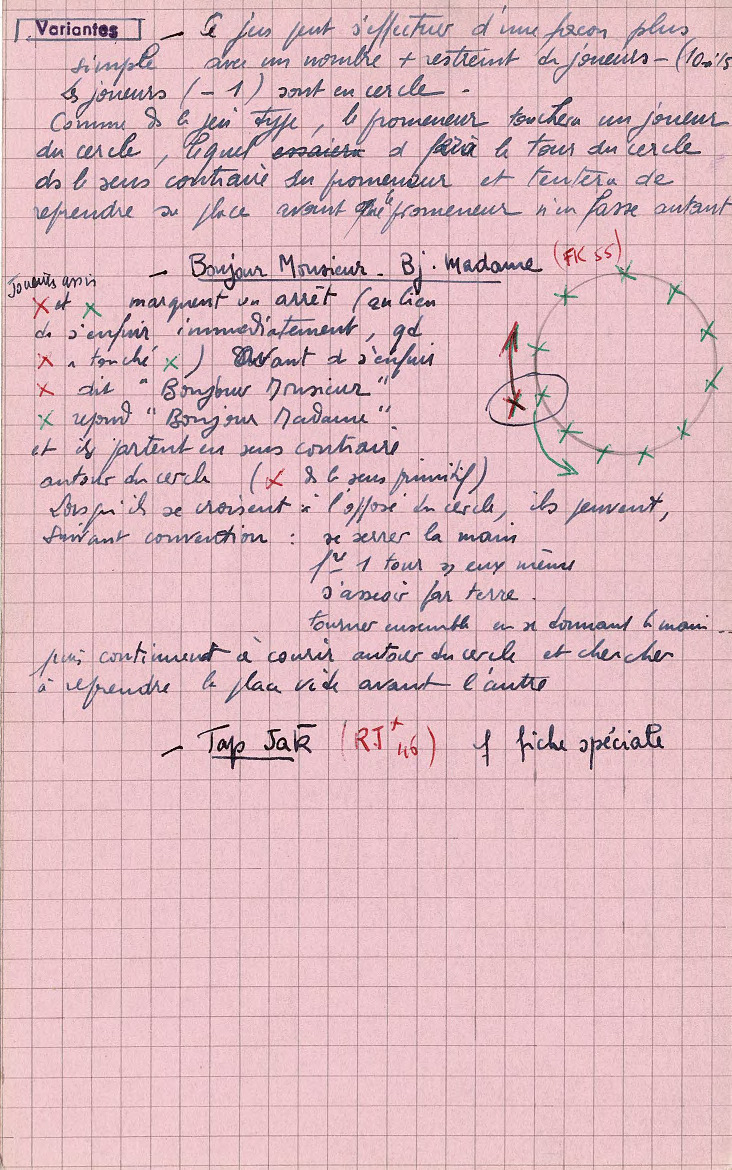 Variantes - Ce jeu peut s'effectuer d'une façon plus
simple avec un nombre + restreint de joueurs - (10 à 15
Les joueurs (- 1) sont en cercle -
Comme ds le jeu type, le promeneur touchera un joueur
du cercle, lequel essaiera d faire le tour du cercle
ds le sens contraire du promeneur et tentera de
reprendre sa place avant que promeneur n'en fasse autant
- Bonjour Monsieur - Bj. Madame (FK 55)
Joueurs assis
x et x marquent un arrêt (au lieu
de s'enfuir immédiatement, qd
x a touché x) Avant de s'enfuir
x dit "Bonjour Monsieur"
x répond "Bonjour Madame"
et ils partent en sens contraire
autour du cercle (x ds le sens primitif)
Lorsqu'ils se croisent à l'opposé du cercle, ils peuvent,
suivant convention : se serrer la main
fre 1 tour s/ eux même
s'asseoir par terre.
tourner ensemble en se donnant la main...
puis continuent à courir autour du cercle et chercher
à reprendre la place vide avant l'autre
- Tap Jak (RJ x 46) f fiche spéciale